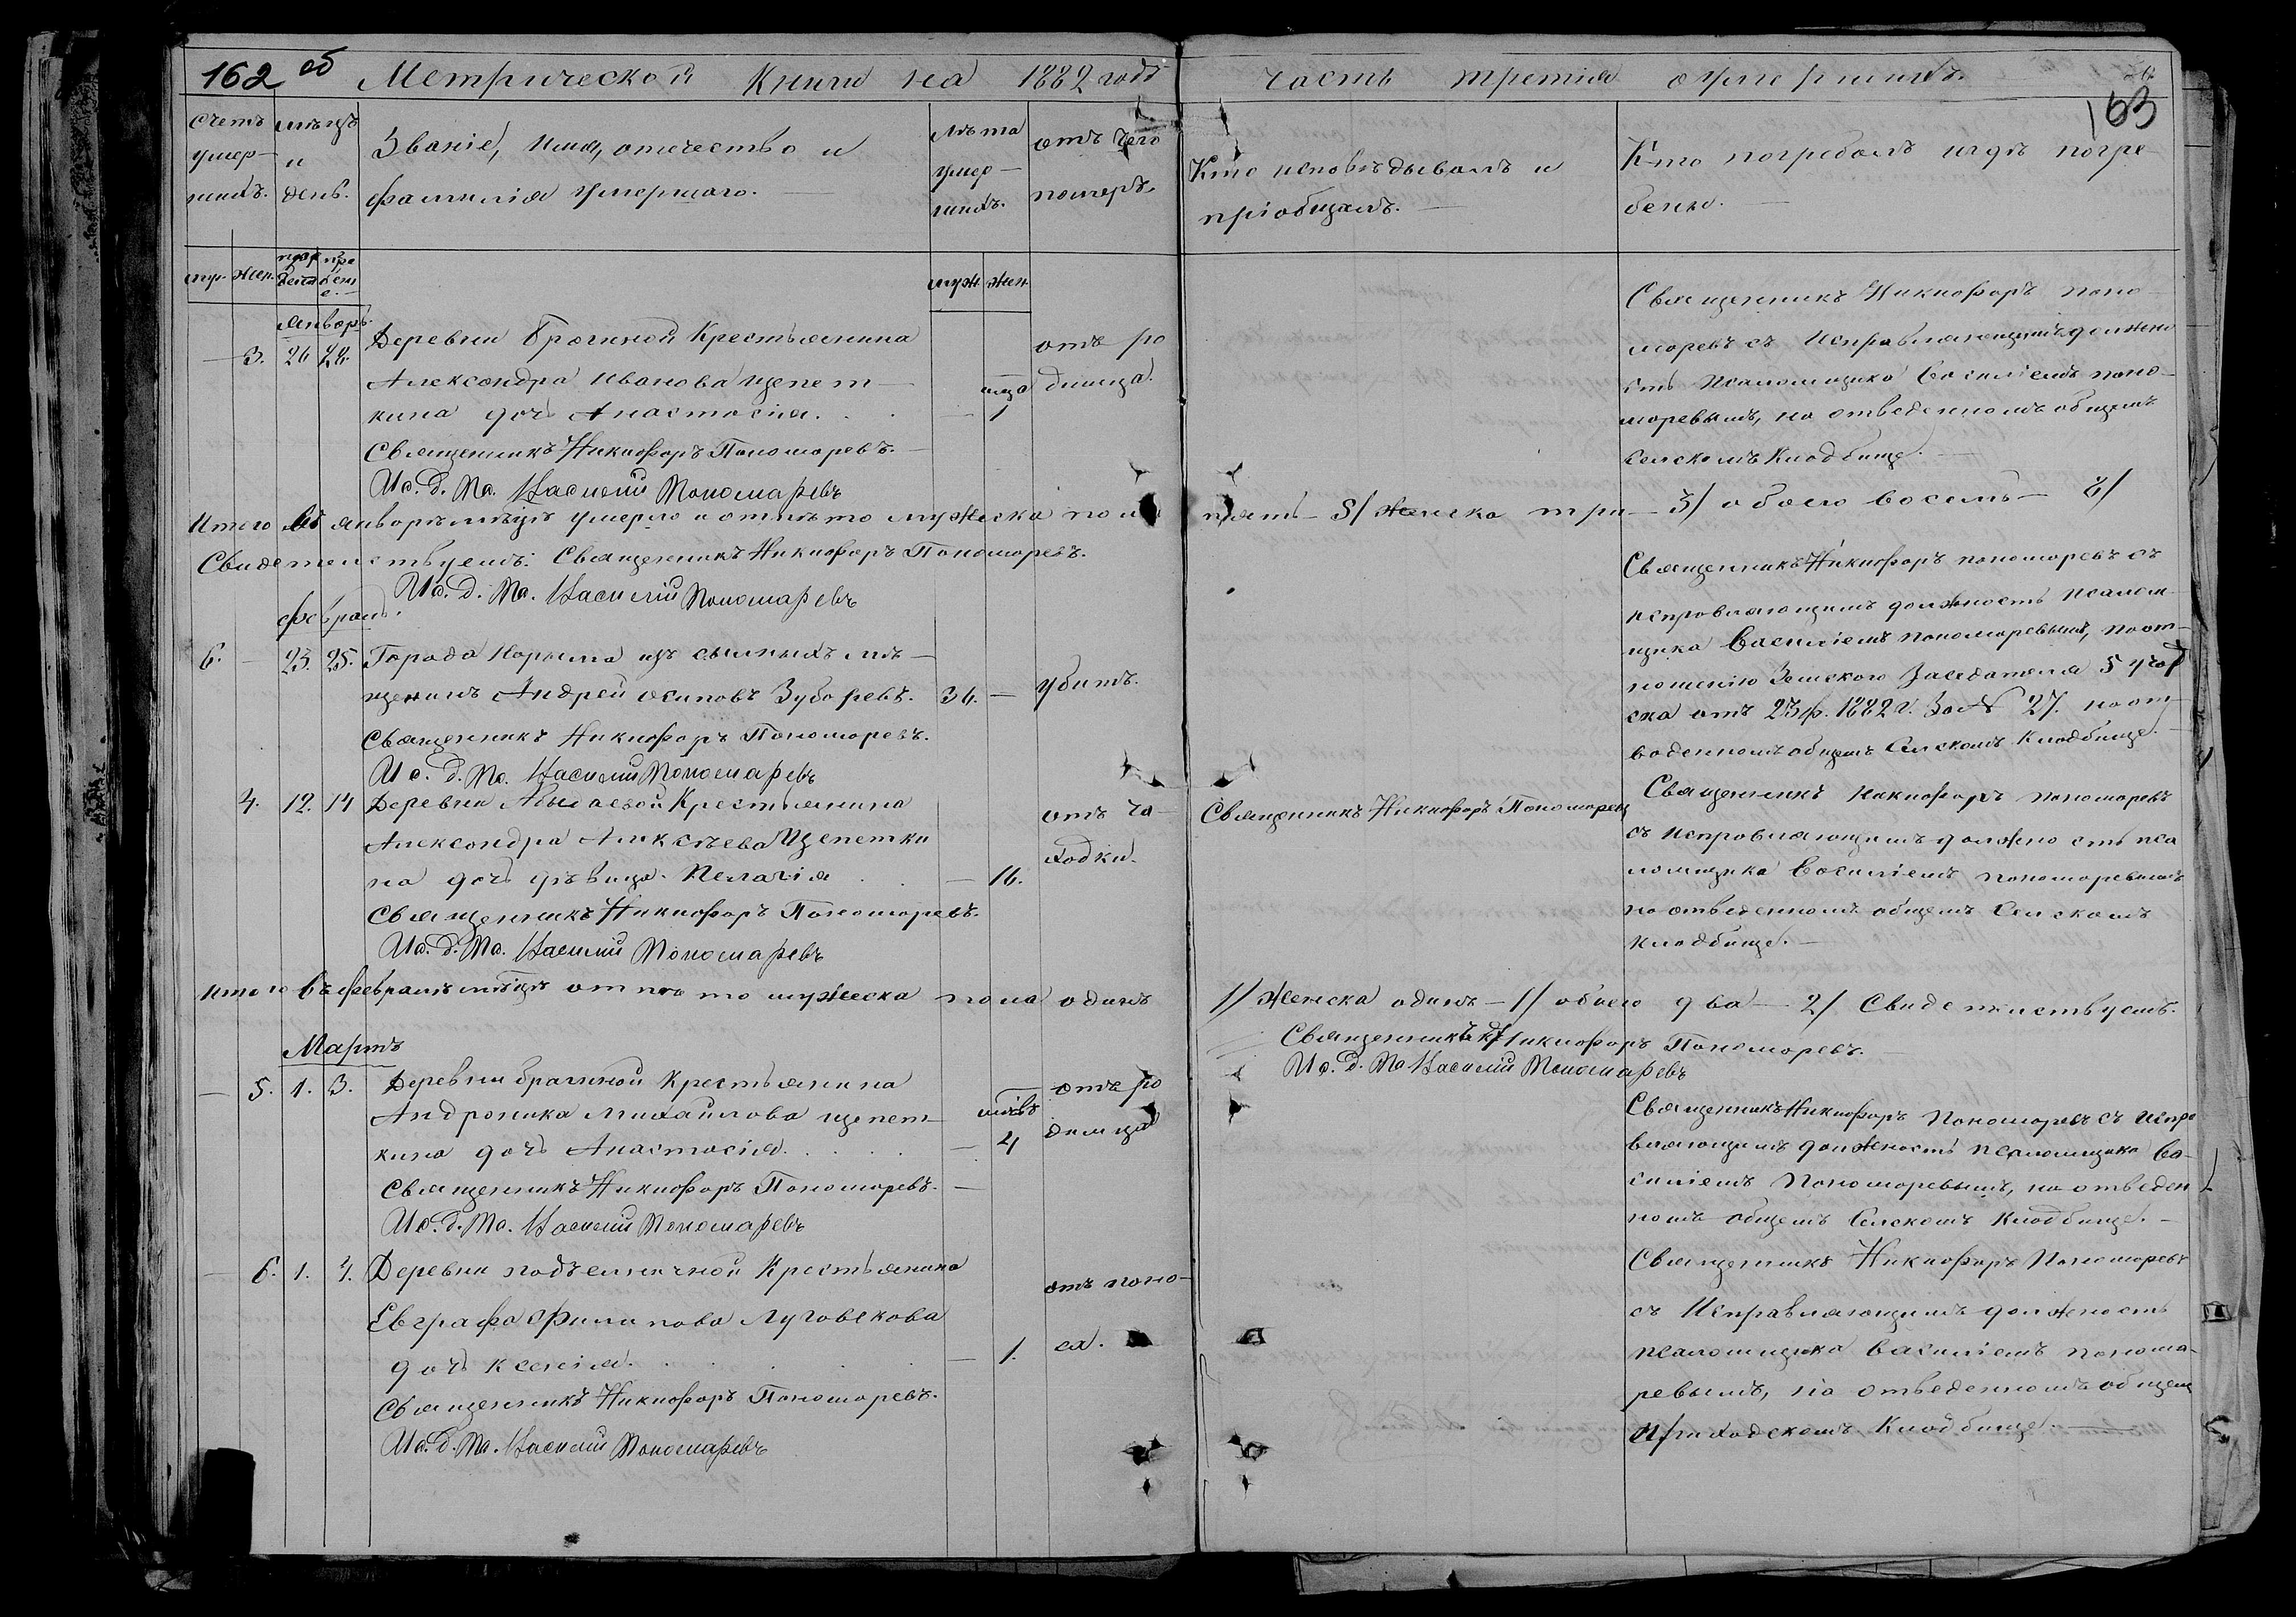 162 об Метрической Книги на 1882 годъ часть третія о умершихъ.
163
Счетъ умер-шихъ.
мѣсяцъ и день.
Званіе, имя, отечество и
фамилія умершаго. —
лѣта умер-шихъ.
отъ чего
померъ.
Кто исповѣдывалъ и
пріобщалъ. —
Кто погребалъ и гдѣ погре-
бены. —
мр. жен.
муж. жен.
Январь.
— 3. 26 28. Деревни Брагиной Крестьянина
Александра Иванова Щепет-
кина дочь Анастасія. . . — мца 1
Священникъ Никифоръ Пономоревъ. —
Ис. д. Пс. Василій Пономаревъ
отъ ро
димца.
Священникъ Никифоръ Поно-
моревъ съ Исправляющимъ должно
сть Псаломщика Василіемъ поно-
моревымъ, на отведенномъ общемъ
Селскомъ Кладбище. —
Итого въ январѣ мѣсяцѣ умерло и отпѣто мужеска пола пять — 5/ Женска три — 3/ обоего восемь — 8/
Свидетелствуемъ: Священникъ Никифоръ Пономоревъ.
Ис. д. Пс. Василій Пономаревъ
февраль.
6. — 23. 25. Города Нарыма изъ сылныхъ мѣ-
щенинъ Андрей Осиповъ Зубаревъ. 36. —
Священникъ Никифоръ Пономоревъ.
Ис. д. Пс. Василій Пономаревъ
убитъ.
Священникъ Никифоръ пономоревъ съ
исправляющимъ должность псалом-
щика Василіемъ пономоревымъ, по от-
ношенію Земского Заседателя 5 учас
ка отъ 23 ф. 1882 г. За № 27. на от-
веденномъ общемъ Селскомъ Кладбище. —
4. 12. 14 Деревни Крестьянина
Александра Алексѣева Щепетки
на дочь дѣвица Пелагія . . — 16.
Священникъ Никифоръ Пономоревъ.
Ис. д. Пс. Василій Пономаревъ
отъ ча-
хотки.
Священникъ Никифоръ Пономоревъ
Священникъ Никифоръ пономоревъ
съ исправляющимъ должность пса
ломщика Василіемъ пономоревымъ
на отведенномъ общемъ Селскомъ
кладбище. —
Итого въ февралѣ мѣсяцѣ отпѣто мужеска пола одинъ 1/ Женска одинъ — 1/ обоего два — 2/ Свидетелствуемъ.
Священникъ Никифоръ Пономоревъ. —
Ис. д. Пс. Василій Пономаревъ
Мартъ
— 5. 1. 3. Деревни Брагиной Крестьянина
Андроника Михайлова Щепет-
кина дочь Анастасія. . . . — 4
Священникъ Никифоръ Пономоревъ. —
Ис. д. Пс. Василій Пономаревъ
отъ ро
димца
Священникъ Никифоръ Пономоревъ съ Испра
вляющимъ должность псаломщика Ва-
силіемъ Пономоревымъ, на отведен
номъ общемъ Селскомъ Кладбище. —
— 6. 1. 4. Деревни Подъелничной Крестьянина
Евграфа Филипова Луговскова
дочь Ксенія. . . . — 1.
Священникъ Никифоръ Пономоревъ.
Ис. д. Пс. Василій Пономаревъ
отъ поно-
са.
Священникъ Никифоръ Пономоревъ
съ Исправляющимъ должность
псаломщика Василіемъ понома-
ревымъ, на отведенномъ общем
Приходскомъ Кладбище. —